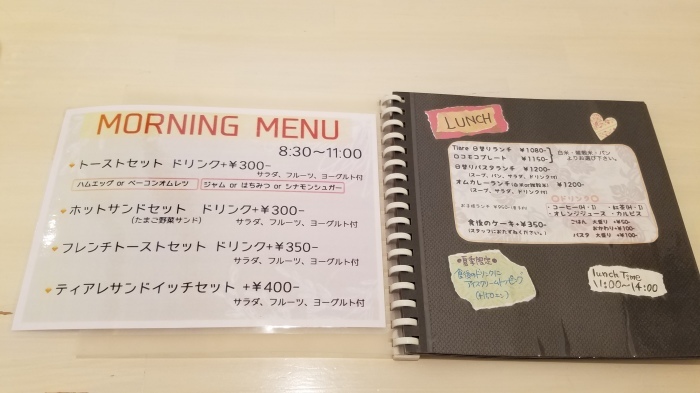 MORNING MENU
8:30～11:00
トーストセット ドリンク+¥300-
サラダ、フルーツ、ヨーグルト付
ハムエッグ or ベーコンオムレツ ジャム or はちみつ or シナモンシュガー
ホットサンドセット ドリンク+¥300-
(たまご野菜サンド) サラダ、フルーツ、ヨーグルト付
フレンチトーストセット ドリンク+¥350-
サラダ、フルーツ、ヨーグルト付
ティアレサンドイッチセット +¥400-
サラダ、フルーツ、ヨーグルト付
LUNCH
Tiare 日替りランチ ¥1080-
ロコモコプレート ¥1150-
白米・雑穀米・パン
よりお選び下さい。
日替りパスタランチ ¥1200-
(スープ、パン、サラダ、ドリンク付)
オムカレーランチ(白米or雑穀米) ¥1200-
(スープ、サラダ、ドリンク付)
ドリンク
・コーヒー(H・I) ・紅茶(H・I)
・オレンジジュース・カルピス
食後のケーキ+¥350-
(スタッフにおたずねください。)
ごはん 大盛り +¥50-
おかわり+¥100-
パスタ 大盛り +¥100-
夏季限定
食後のドリンクに
アイスクリームトッピング
lunch Time
11:00～14:00